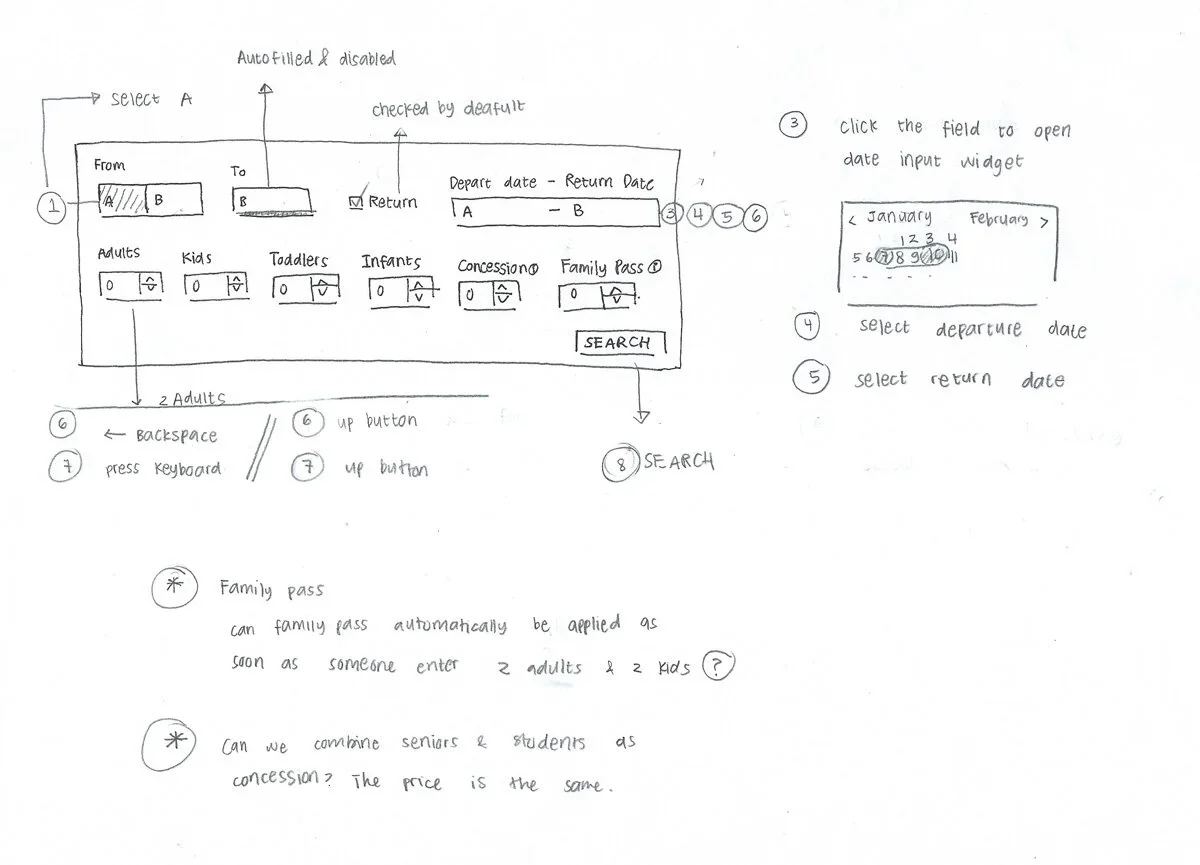 Autofilled & disabled
select A
checked by deafult
From
To
A B
B
Return
Depart date - Return Date
A - B
1
3 4 5 6
Adults Kids Toddlers Infants Concession i Family Pass i
0 0 0 0 0 0
SEARCH
2 Adults
6 ← Backspace
7 press keyboard
6 up button
7 up button
8 SEARCH
3 click the field to open
date input widget
< January February >
1 2 3 4
5 6 7 8 9 10 11
4 select departure date
5 select return date
* Family pass
can family pass automatically be applied as
soon as someone enter 2 adults & 2 kids ?
* Can we combine seniors & students as
concession? The price is the same.